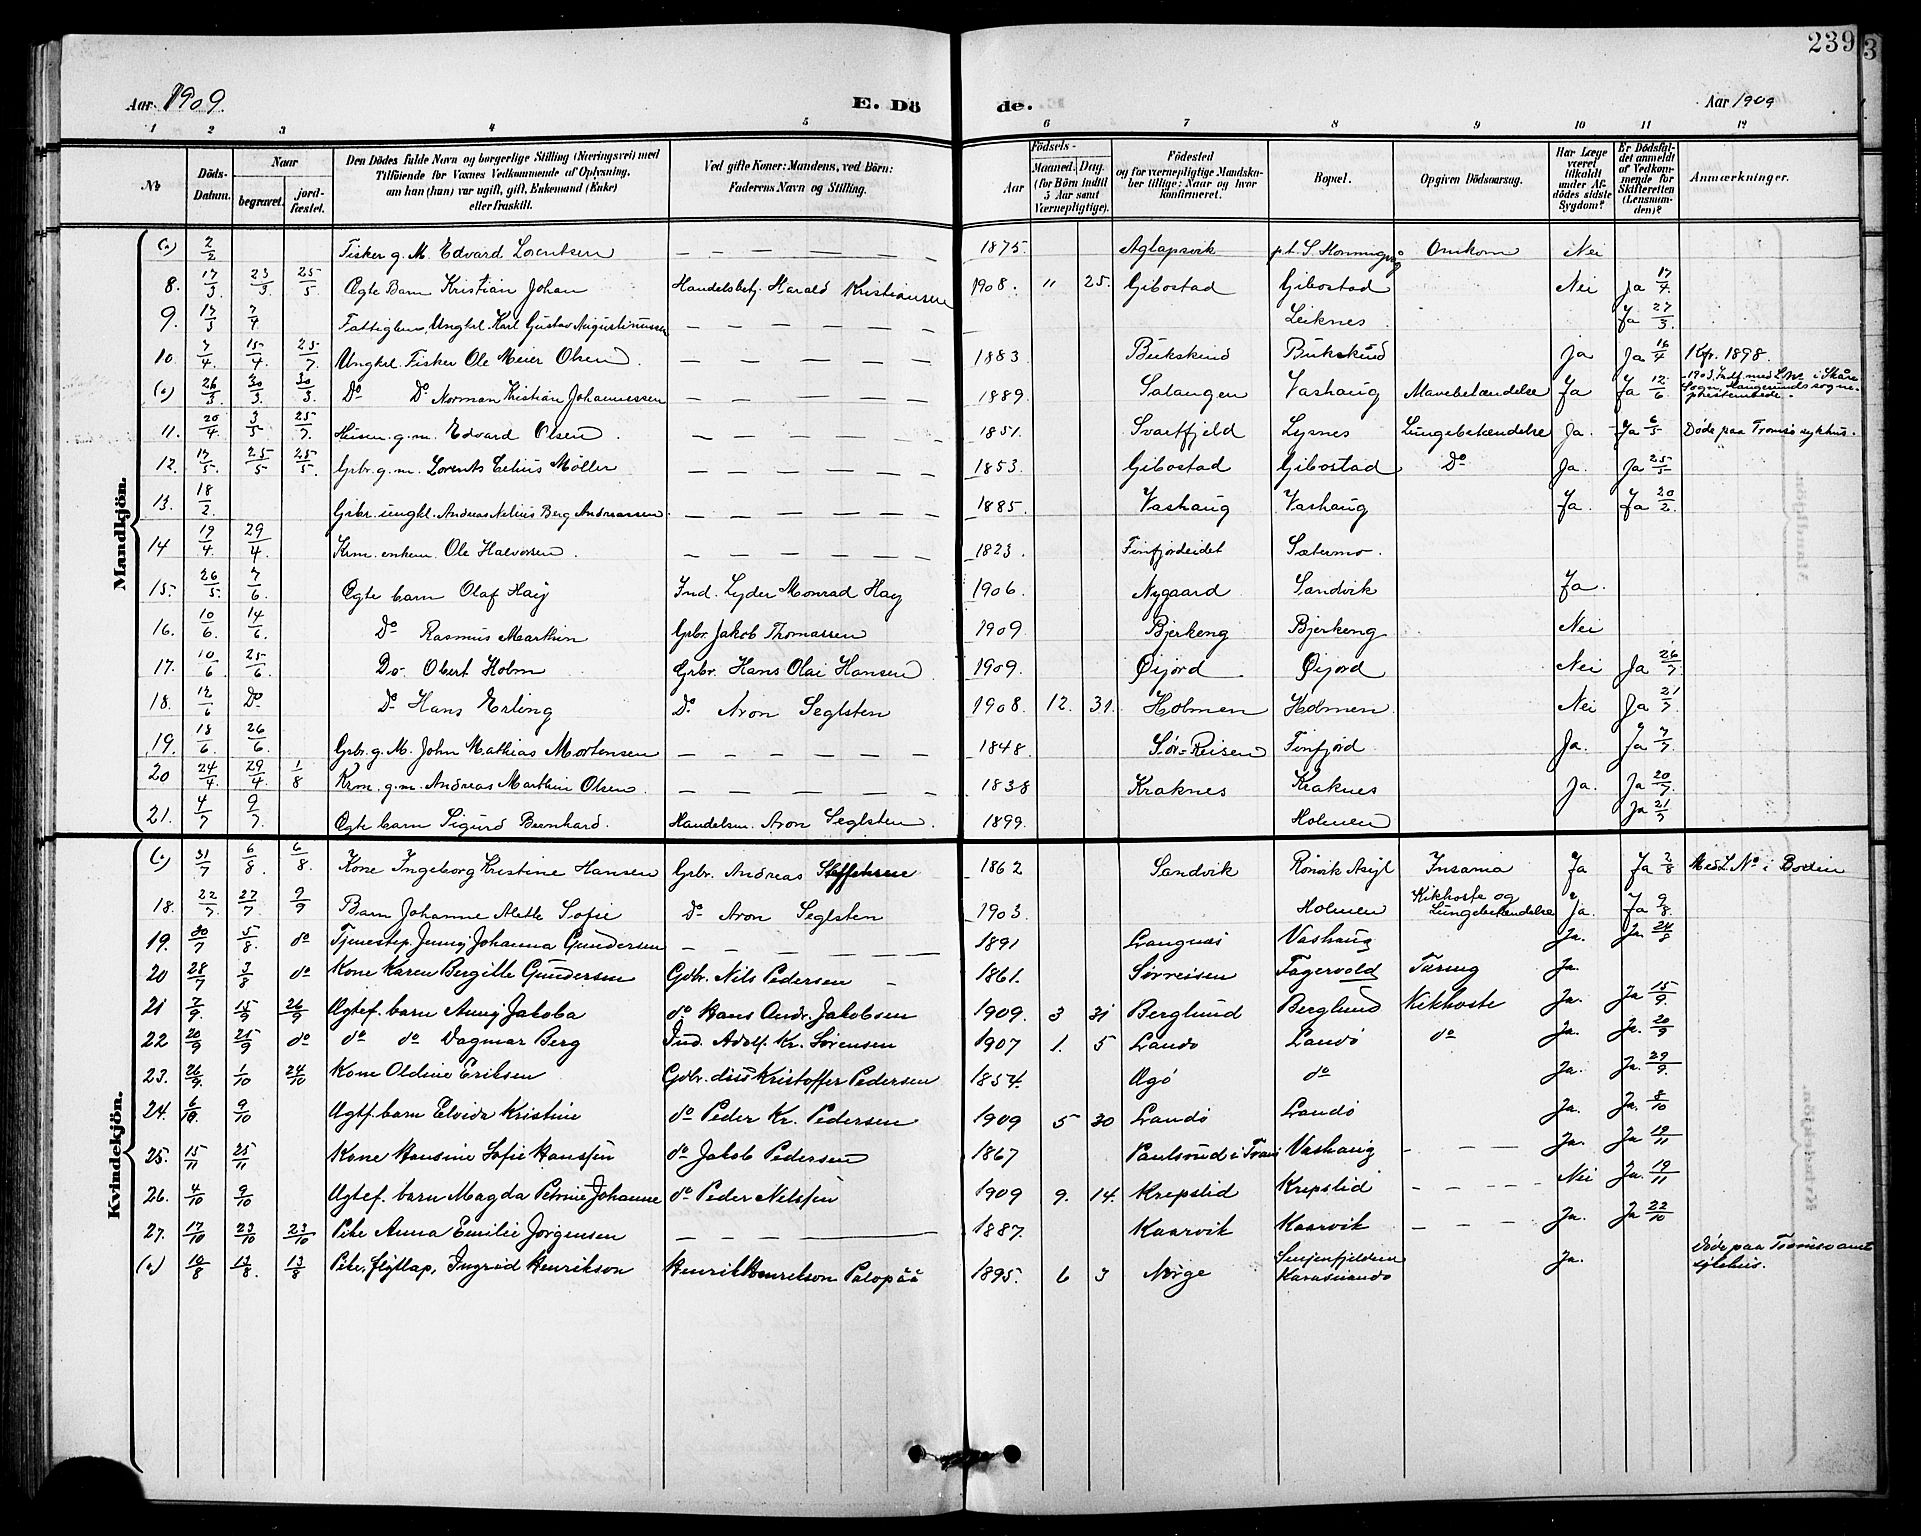 239
Aar 1909.
E. Dö
de.
Aar 1909
1 2 3 4 5 6 7 8 9 10 11 12
No
Döds-Datum.
Naar
begravet.
jord-fæstet.
Den Dödes fulde Navn og borgerlige Stilling (Næringsvei) med
Tilföiende for Voxnes Vedkommende af Oplysning,
om han (hun) var ugift, gift, Enkemand (Enke)
eller fraskilt.
Ved gifte Koner: Mandens, ved Börn:
Faderens Navn og Stilling.
Födsels-
Aar
Maaned. Dag.
(for Börn indtil
5 Aar samt
Værnepligtige).
Födested
og for værnepligtige Mandska-
ber tillige: Naar og hvor
konfirmeret.
Bopæl.
Opgiven Dödsaarsag.
Har Læge
været
tilkaldt
under Af-
dödes sidste
Sygdom?
Er Dödsfal-
det anmeldt
af Vedkom-
mende for
Skifteretten
(Lensman-
den)?
Anmærkninger.
Mandkjön.
(a) 2/2 Fisker g. M. Edvard Lorentsen — — — — — 1875 Aglapsvik Omkom Nei
8. 17/3 23/3 25/5 Ægte Barn Kristian Johan Handelsbetj. Harald Kristiansen 1908. " 25. Gibostad Gibostad Nei Ja 17/4
9. 17/3 7/4 Fattiglem, Ungkrl. Karl Gustav Augustinussen — — — — — Leiknes Ja 27/3
10. 7/4 15/4 25/7 Ungkrl. Fisker Ole Meier Olsen — — — — — 1883 Bukskind Bukskind Ja Ja 16/4 Kfr. 1898.
(a) 26/3 30/3 30/3 Do Do Norman Kristian Johannessen — — — — — 1889 Salangen Vashaug Mavebetændelse Ja Ja 12/6
11. 20/4 3/5 25/7 g. m. Edvard Olsen — — — — — 1851. Svartfjeld Lysnes Lungebetændelse Ja. Ja 6/5 Døde paa Tromsø sykhus.
12. 17/5 25/5 25/5 Grbr. g. m. Lorents Celius Møller — — — — — 1853 Gibostad Gibostad Do Ja. Ja 25/5
13. 18/2 Grbr. ungkl. Andreas Nelius Berg Andreassen — — — — — 1885. Vashaug Vashaug Ja. Ja 20/2
14 19/4 29/4 Krm. enkem. Ole Halvorsen — — — — — 1823. Finfjordeidet Sætermo.
15. 26/5 7/6 Ægte barn Olaf Hag Ind. Lyder Monrad Hag 1906. Nygaard Sandvik Ja.
16. 10/6 14/6 Do Rasmus Marthin Grbr. Jakob Thomassen 1909 Bjerkeng Bjerkeng Nei
17. 10/6 25/6 Do. Obert Holm Grbr. Hans Olai Hansen 1909. Øijord Øijord Nei Ja 26/7
18. 12/6 Do Do Hans Erling Do Aron Seglsten 1908. 12. 31. Holmen Holmen Nei Ja 21/7
19. 18/6 26/6 Grbr. g. M. John Mathias Mortensen — — — — — 1848. Sør-Reisen Finfjord Ja. Ja 7/7
20 24/4 29/4 1/8 Krm. g. m. Andreas Marthin Olsen — — — — — 1838 Kraknes Kraknes Ja. Ja 20/7
21. 4/7 9/7 Ægte barn Sigurd Bernhard. Handelsm. Aron Seglsten. 1899. Holmen Ja 21/7
Kvindekjön.
(a) 31/7 6/8 6/8 Kone Ingeborg Kristine Hansen Grbr. Andreas Steffensen 1862 Sandvik Rönvik Asyl Insania Ja Ja 2/8 Med L. No i Bodin
18. 22/7 27/7 2/9 Barn Johanne Alette Sofie Do Aron Seglsten 1903. Holmen Kikhoste og Lungebetændelse Ja. Ja 9/8
19. 30/7 5/8 do Tjenestep. Jenny Johanna Gundersen — — — — 1891 Langnæs Vashaug Ja. Ja. 24/8
20 28/7 3/8 do Kone Karen Bergitte Gundersen Gdbr. Nils Pedersen 1861. Sørreisen Fagervold Tæring Ja.
21 7/9. 15/9 26/9 Ægtef. barn Anny Jakoba do Hans Andr. Jakobsen 1909. 3 31 Berglund Berglund Kikhoste Ja. Ja 15/9.
22 20/9 25/9 do do do Dagmar Berg Ind. Adolf Kr. Sørensen 1907 1. 5 Landø Landø do Ja. Ja. 20/9
23. 26/9. 1/10 24/10 Kone Oldine Eriksen Gdbr. Kristoffer Pedersen 1854. Ægø do Ja. Ja. 29/9.
24. 6/10. 9/10 Ægtf. barn Elvida Kristine do Peder Kr. Pedersen 1909 5 30 Landø Landø Ja. Ja. 8/10
25. 15/11 25/11 Kone Hansine Sofie Hanssen do Jakob Pedersen 1867 Paulsrud i Trans Vashaug — — — Ja. Ja 19/11
26. 4/10 9/10 Ægtef. barn Magda Petrine Johanne do Peder Nilssen 1909 9. 14. Krepslid Krepslid — — — — Nei Ja. 19/11
27. 17/10 23/10 23/10 Pike Anna Emilie Jørgensen — — — — 1887. Kaarvik Kaarvik — — — Ja. Ja 22/10
(a) 10/8 13/8. 13/8 Pike, flytlap, Ingrid Henrikson Henrik Henrikson Palopää 1895. 6 3 Norge Senjenfjeldene Karasuando Ja. Døde paa Tromsø amt sykehus.